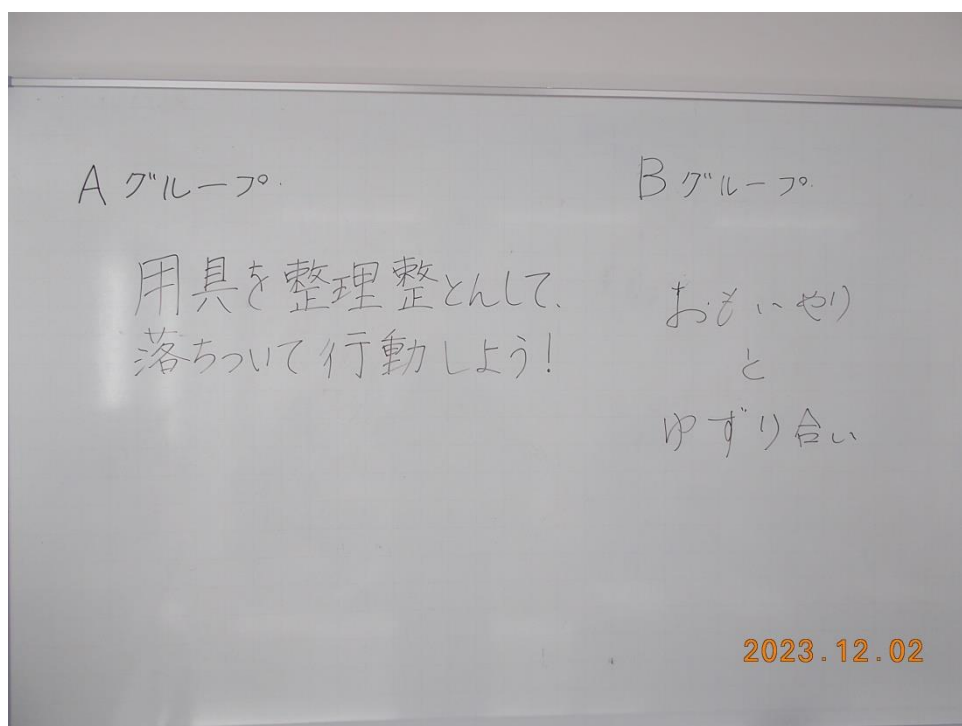 Aグループ.
用具を整理整とんして、
落ちついて行動しよう!
Bグループ.
おもいやり
と
ゆずり合い
2023.12.02